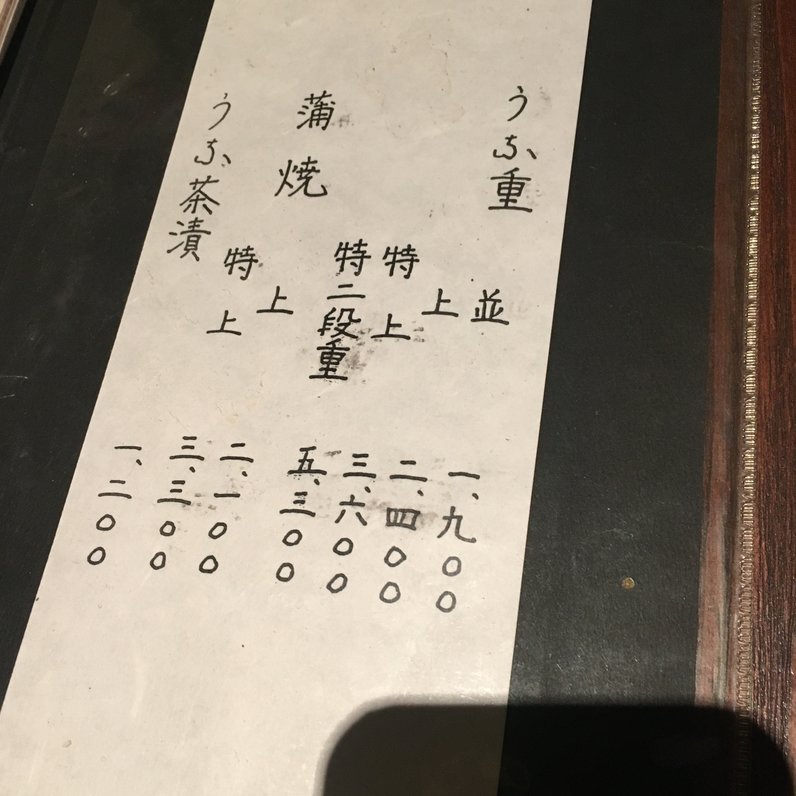 うな重 並 一、九〇〇
上 二、四〇〇
特上 三、六〇〇
特二段重 五、三〇〇
蒲焼 上 二、一〇〇
特上 三、三〇〇
うな茶漬 一、二〇〇